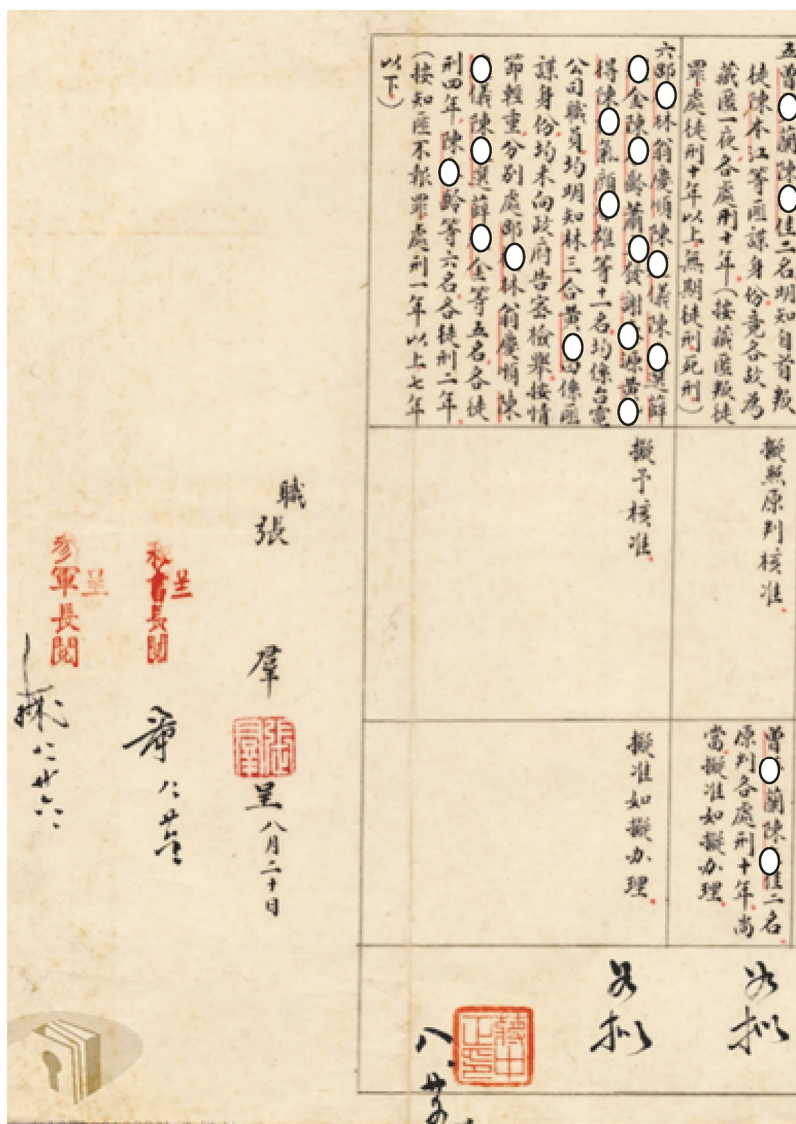 五曾○蘭陳○佳二名明知自首叛
徒陳本江等匪諜身份竟各故為
藏匿一夜各處刑十年(按藏匿叛徒
罪處徒刑十年以上無期徒刑死刑)
六鄔○林翁慶順陳○儀陳○選薛
○金陳○齡蕭○發謝○源黃○
得陳○氣顏○雄等十一名均係台電
公司職員均明知林三合黃○西係匪
諜身份均未向政府告密檢舉按情
節輕重分別處鄔○林翁慶順陳
○儀陳○選薛○金等五名各徒
刑四年陳○齡等六名各徒刑二年
(按知匪不報罪處刑一年以上七年
以下)
擬照原判核准
擬予核准
曾○蘭陳○佳二名
原判各處刑十年尚
當擬准如擬办理
擬准如擬办理
如拟
如拟
蔣中
正印
職
張 羣
張羣
呈八月二十日
呈
秘書長閱
呈
參軍長閱